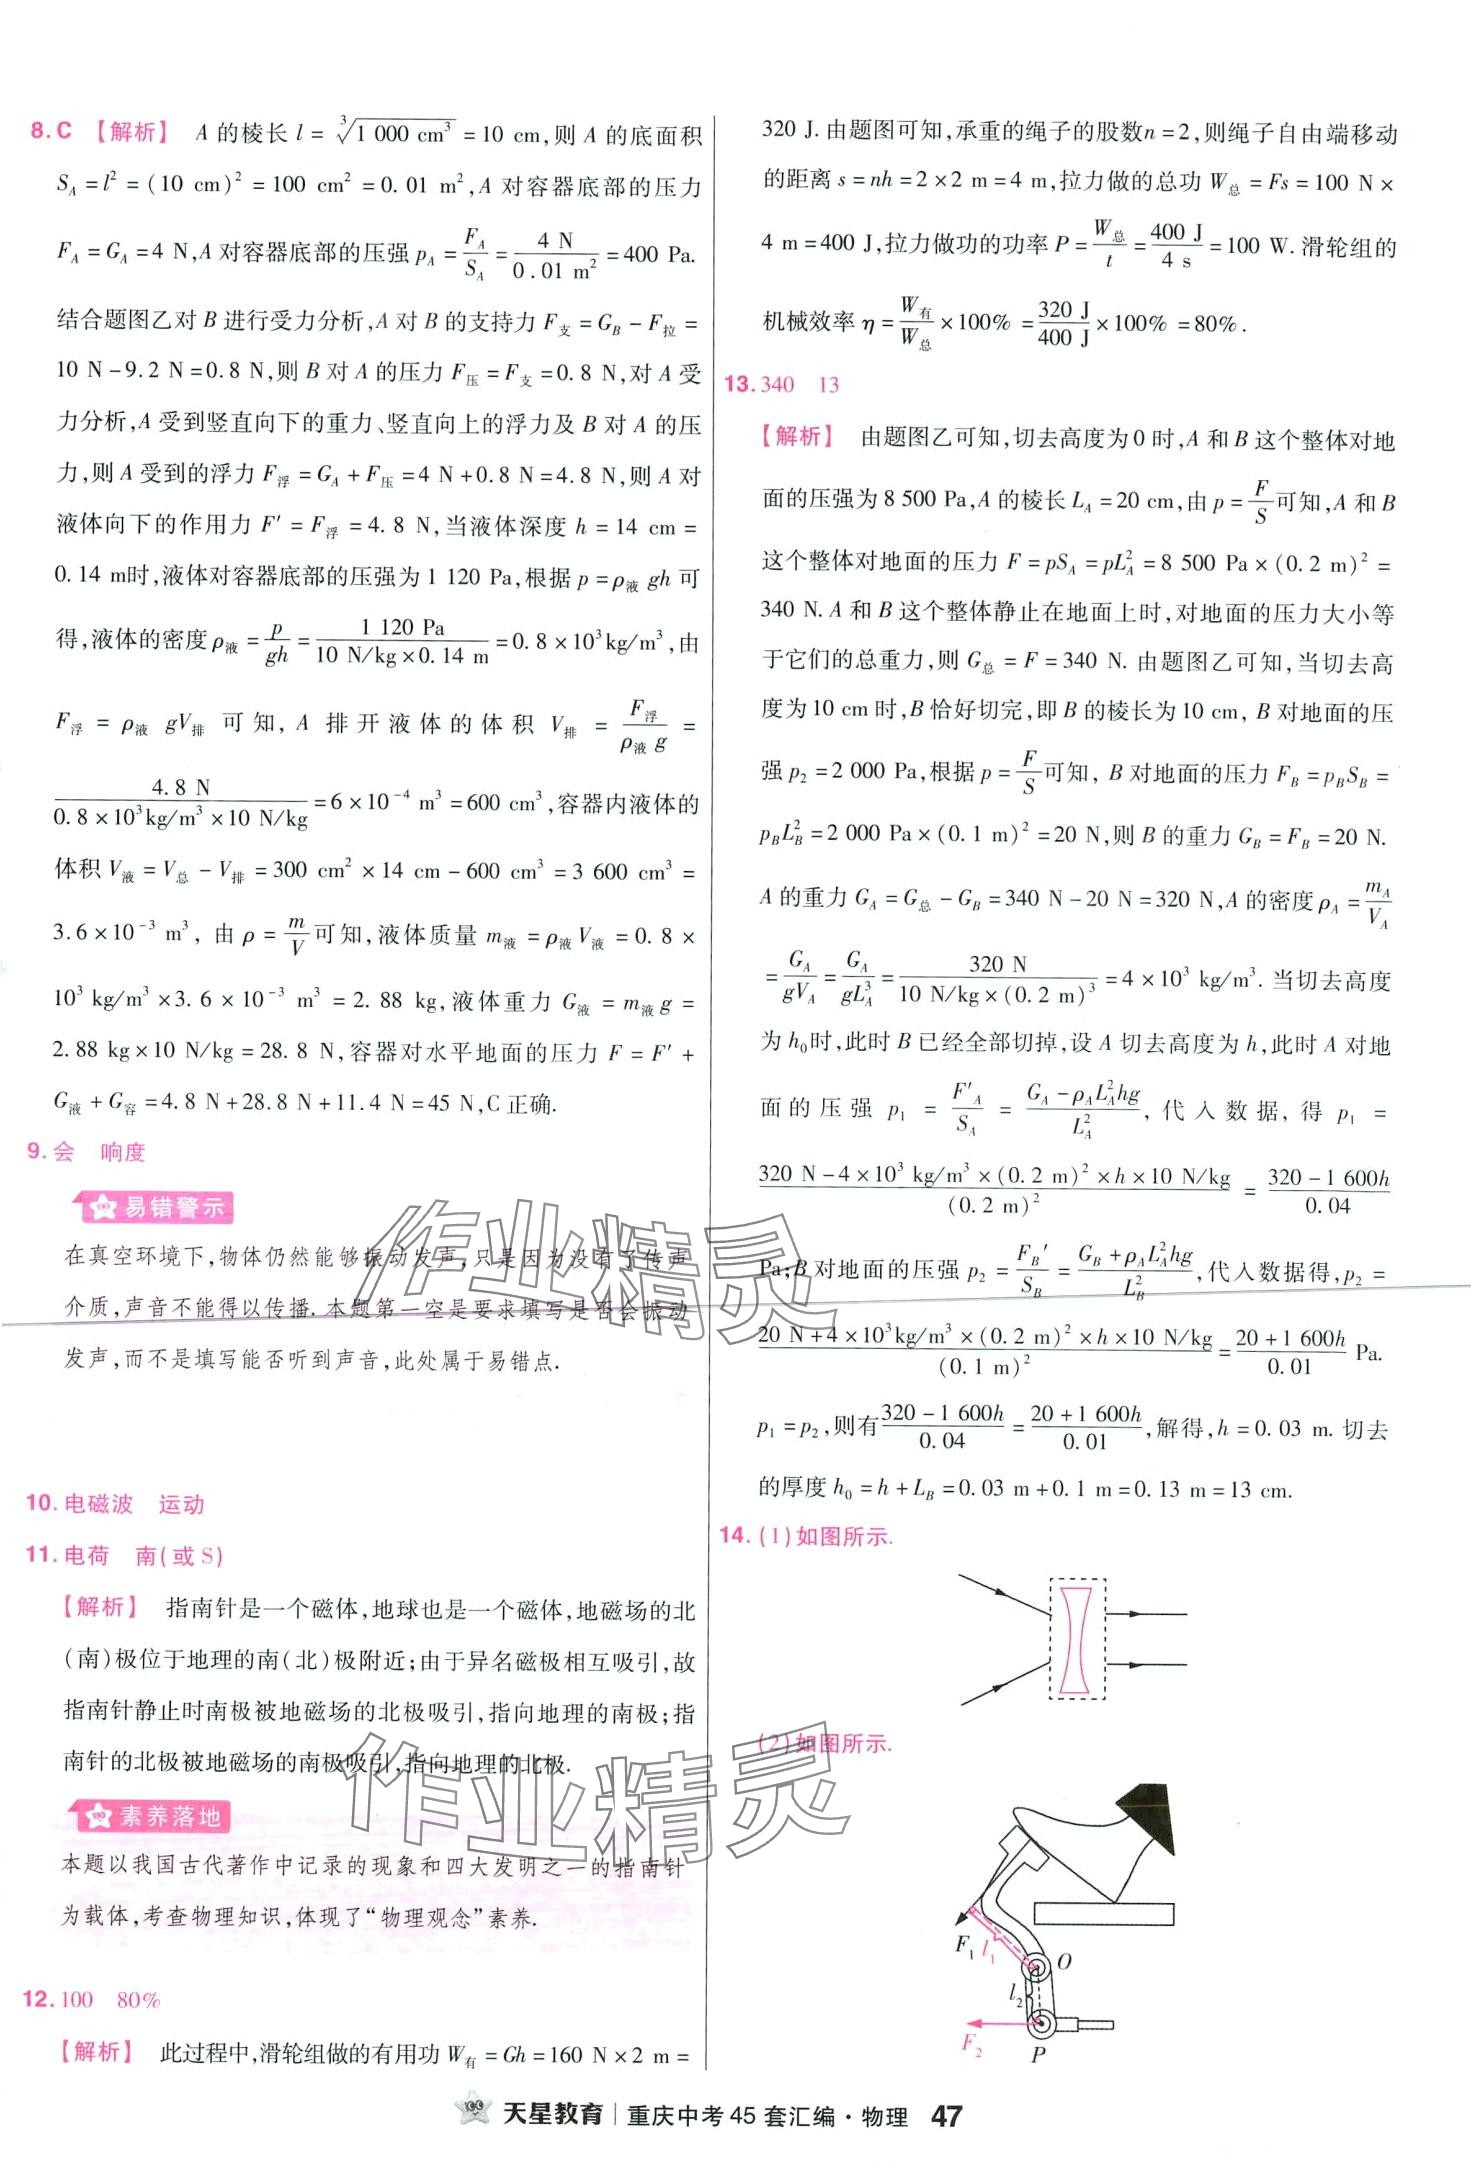 8.C 【解析】 A的棱长l=∛1 000 cm³=10 cm,则A的底面积
S_A=l²=(10 cm)²=100 cm²=0.01 m²,A对容器底部的压力
F_A=G_A=4 N,A对容器底部的压强p_A=F_A/S_A=4 N/0.01 m²=400 Pa.
结合题图乙对B进行受力分析,A对B的支持力F支=G_B-F拉=
10 N-9.2 N=0.8 N,则B对A的压力F压=F支=0.8 N,对A受
力分析,A受到竖直向下的重力、竖直向上的浮力及B对A的压
力,则A受到的浮力F浮=G_A+F压=4 N+0.8 N=4.8 N,则A对
液体向下的作用力F'=F浮=4.8 N,当液体深度h=14 cm=
0.14 m时,液体对容器底部的压强为1 120 Pa,根据p=ρ液gh可
得,液体的密度ρ液=p/gh=1 120 Pa/(10 N/kg×0.14 m)=0.8×10³kg/m³,由
F浮=ρ液gV排可知,A排开液体的体积V排=F浮/ρ液g=
4.8 N/(0.8×10³kg/m³×10 N/kg)=6×10⁻⁴ m³=600 cm³,容器内液体的
体积V液=V总-V排=300 cm²×14 cm-600 cm³=3 600 cm³=
3.6×10⁻³ m³,由ρ=m/V可知,液体质量m液=ρ液V液=0.8×
10³ kg/m³×3.6×10⁻³ m³=2.88 kg,液体重力G液=m液g=
2.88 kg×10 N/kg=28.8 N,容器对水平地面的压力F=F'+
G液+G容=4.8 N+28.8 N+11.4 N=45 N,C正确.
9.会 响度
易错警示
在真空环境下,物体仍然能够振动发声,只是因为没有了传声
介质,声音不能得以传播.本题第一空是要求填写是否会振动
发声,而不是填写能否听到声音,此处属于易错点.
10.电磁波 运动
11.电荷 南(或S)
【解析】 指南针是一个磁体,地球也是一个磁体,地磁场的北
(南)极位于地理的南(北)极附近;由于异名磁极相互吸引,故
指南针静止时南极被地磁场的北极吸引,指向地理的南极;指
南针的北极被地磁场的南极吸引,指向地理的北极.
素养落地
本题以我国古代著作中记录的现象和四大发明之一的指南针
为载体,考查物理知识,体现了“物理观念”素养.
12.100 80%
【解析】 此过程中,滑轮组做的有用功W有=Gh=160 N×2 m=
320 J.由题图可知,承重的绳子的股数n=2,则绳子自由端移动
的距离s=nh=2×2 m=4 m,拉力做的总功W总=Fs=100 N×
4 m=400 J,拉力做功的功率P=W总/t=400 J/4 s=100 W.滑轮组的
机械效率η=W有/W总×100%=320 J/400 J×100%=80%.
13.340 13
【解析】 由题图乙可知,切去高度为0时,A和B这个整体对地
面的压强为8 500 Pa,A的棱长L_A=20 cm,由p=F/S可知,A和B
这个整体对地面的压力F=pS_A=pL_A²=8 500 Pa×(0.2 m)²=
340 N.A和B这个整体静止在地面上时,对地面的压力大小等
于它们的总重力,则G总=F=340 N.由题图乙可知,当切去高
度为10 cm时,B恰好切完,即B的棱长为10 cm,B对地面的压
强p₂=2 000 Pa,根据p=F/S可知,B对地面的压力F_B=p_BS_B=
p_BL_B²=2 000 Pa×(0.1 m)²=20 N,则B的重力G_B=F_B=20 N.
A的重力G_A=G总-G_B=340 N-20 N=320 N,A的密度ρ_A=m_A/V_A
=G_A/gV_A=G_A/gL_A³=320 N/(10 N/kg×(0.2 m)³)=4×10³ kg/m³.当切去高度
为h₀时,此时B已经全部切掉,设A切去高度为h,此时A对地
面的压强p₁=F'_A/S_A=(G_A-ρ_AL_A²hg)/L_A²,代入数据,得p₁=
(320 N-4×10³ kg/m³×(0.2 m)²×h×10 N/kg)/(0.2 m)²=(320-1 600h)/0.04
Pa;B对地面的压强p₂=F_B'/S_B=(G_B+ρ_AL_A²hg)/L_B²,代入数据得,p₂=
(20 N+4×10³kg/m³×(0.2 m)²×h×10 N/kg)/(0.1 m)²=(20+1 600h)/0.01 Pa.
p₁=p₂,则有(320-1 600h)/0.04=(20+1 600h)/0.01,解得,h=0.03 m.切去
的厚度h₀=h+L_B=0.03 m+0.1 m=0.13 m=13 cm.
14.(1)如图所示.
(2)如图所示.
F₁ l₁ O
l₂
F₂ P
作业精灵
作业精灵
天星教育 | 重庆中考45套汇编·物理 47